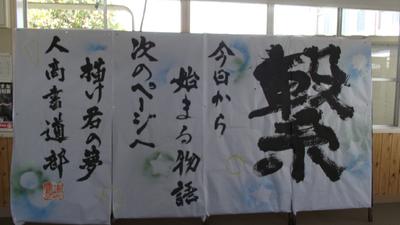 繋
今日から
始まる物語
次のページへ
描け君の夢
人高書道部